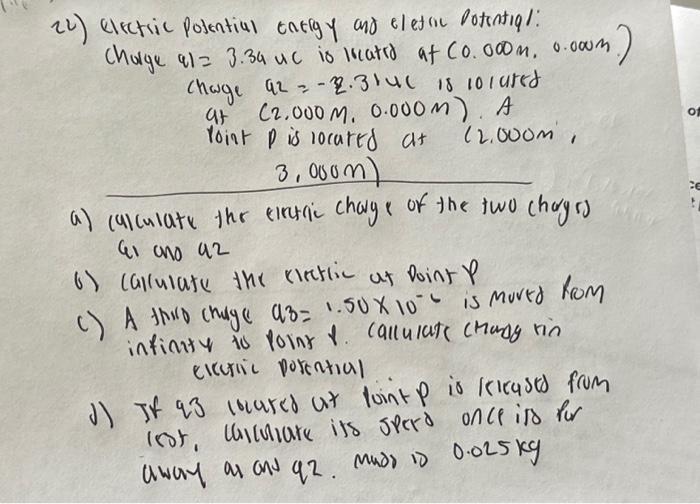 22) electric Potential Energy and eletric Potential:
Charge q1= 3.34 uc is located at (0.000m, 0.000m.)
charge q2 = -2.31uc is located
at (2.000m, 0.000m). A
Point p is located at (2.000m,
3,000m)
a) calculate the electric charge of the two charges
q1 and q2
b) calculate the electric at Point P
c) A third charge q3= 1.50X10-6 is moved from
infinity to Point P. calculate change in
electric potential
d) If q3 located at Point p is released from
rest, calculate its speed once its far
away q1 and q2. mass is 0.025kg